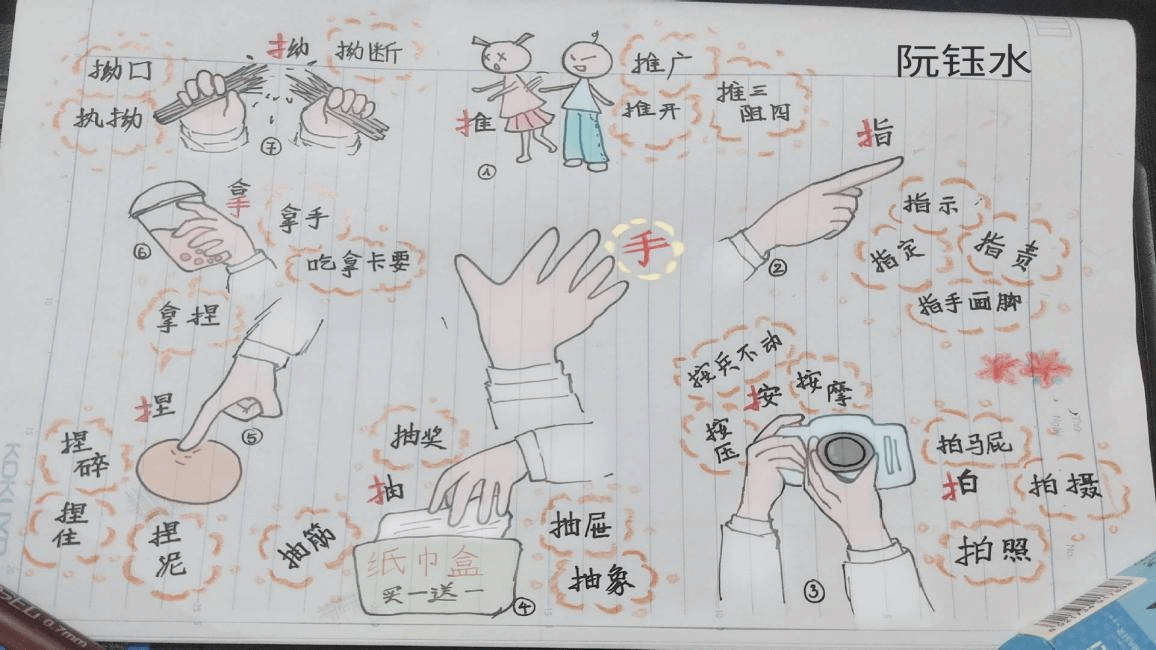 阮钰水
手
推
①
推广
推开
推三
阻四
指
②
指示
指定
指责
指手画脚
按兵不动
按
按摩
按压
拍马屁
拍
拍摄
拍照
③
抽奖
抽
抽筋
抽屉
抽象
纸巾盒
买一送一
④
捏
⑤
捏
碎
捏
住
捏
泥
拿
⑥
拿手
吃拿卡要
拿捏
拗
⑦
拗口
拗断
执拗
KOKUYO
0.7mm